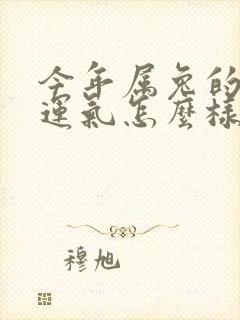 今年属兔的
運氣怎麼樣
穆旭